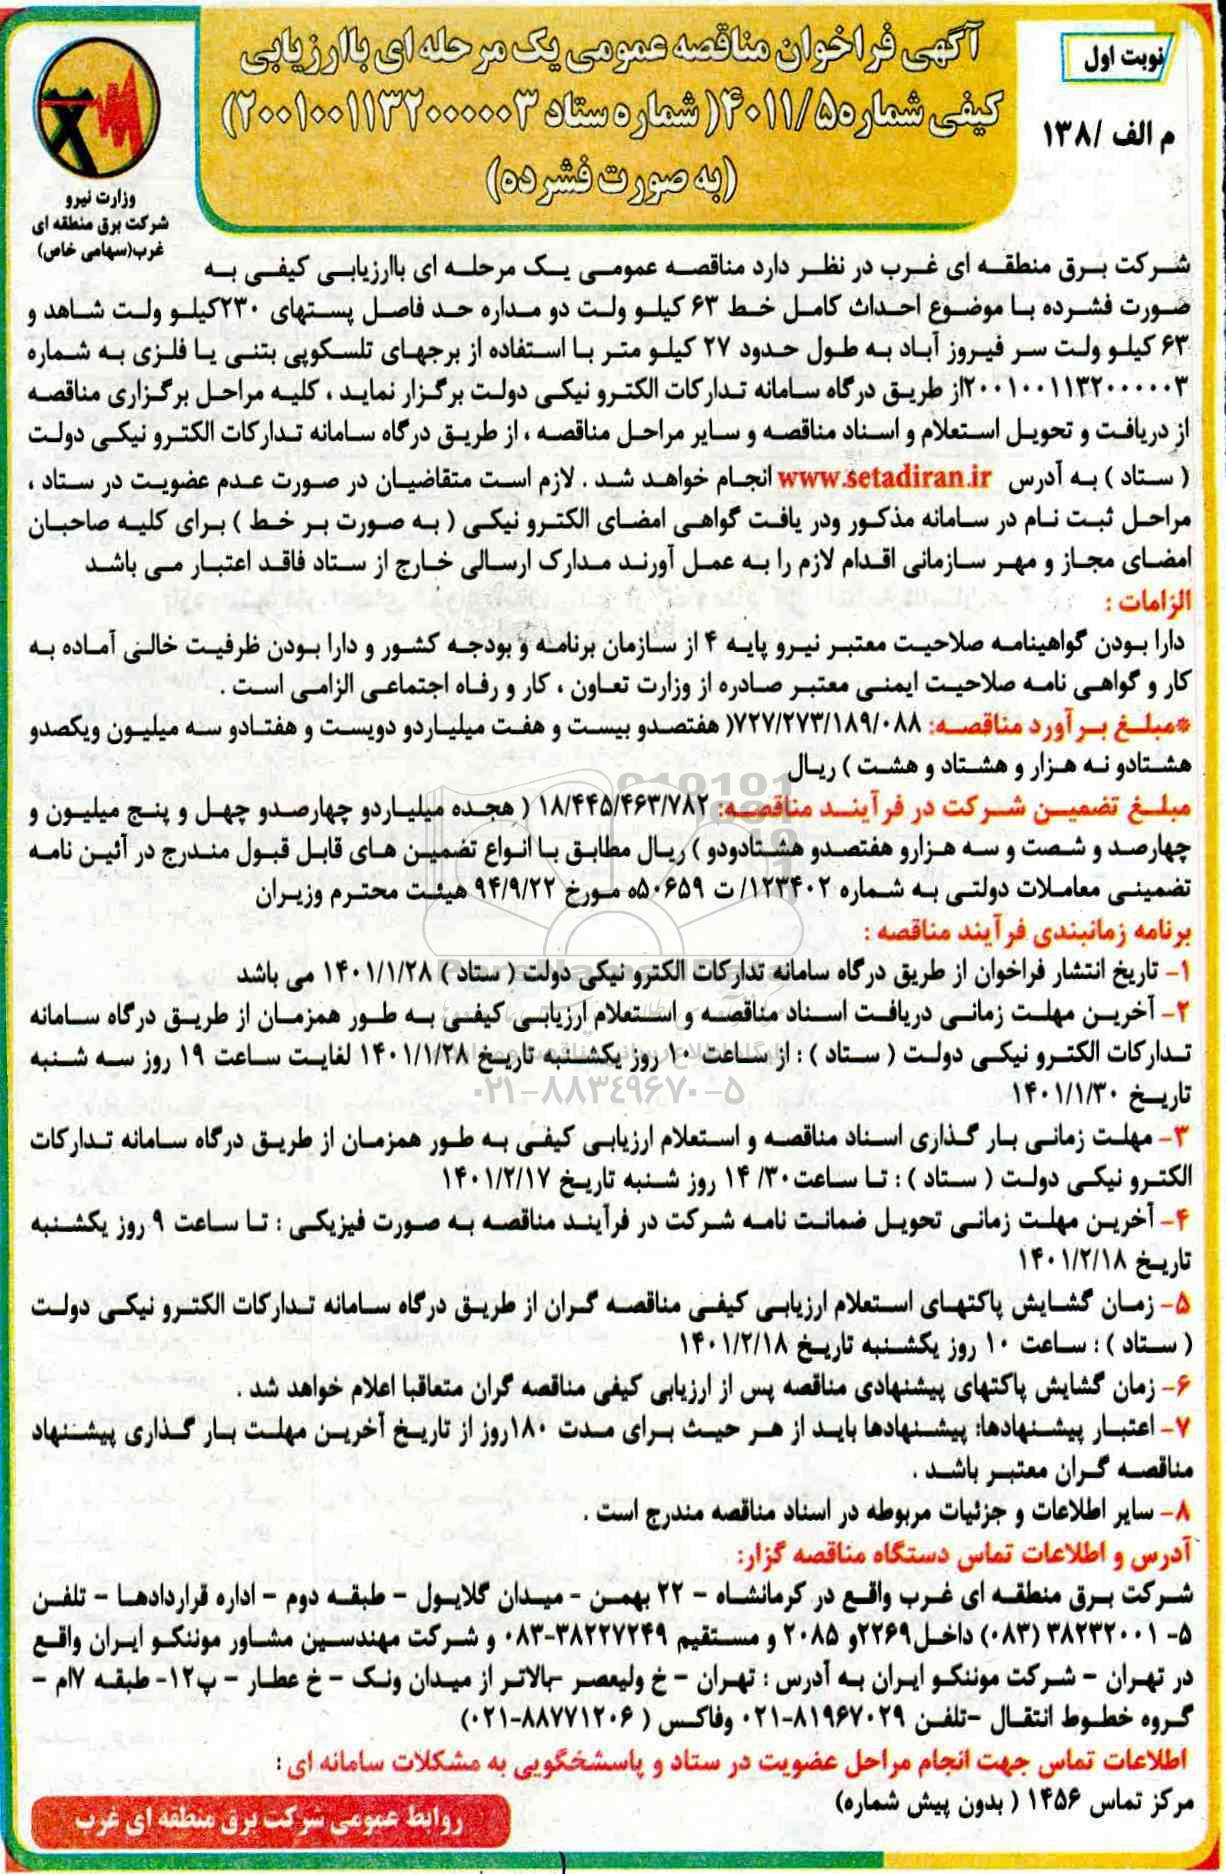 نوبت اول
م الف /۱۳۸
آگهی فراخوان مناقصه عمومی یک مرحله ای باارزیابی
کیفی شماره۴۰۱۱/۵( شماره ستاد ۲۰۰۱۰۰۱۱۳۲۰۰۰۰۰۳)
(به صورت فشرده)
وزارت نیرو
شرکت برق منطقه ای
غرب(سهامی خاص)
شرکت برق منطقه ای غرب در نظر دارد مناقصه عمومی یک مرحله ای باارزیابی کیفی به
صورت فشرده با موضوع احداث کامل خط ۶۳ کیلو ولت دو مداره حد فاصل پستهای ۲۳۰کیلو ولت شاهد و
۶۳ کیلو ولت سر فیروز آباد به طول حدود ۲۷ کیلو متر با استفاده از برجهای تلسکوپی بتنی یا فلزی به شماره
۲۰۰۱۰۰۱۱۳۲۰۰۰۰۰۳از طریق درگاه سامانه تدارکات الکترو نیکی دولت برگزار نماید ، کلیه مراحل برگزاری مناقصه
از دریافت و تحویل استعلام و اسناد مناقصه و سایر مراحل مناقصه ، از طریق درگاه سامانه تدارکات الکترو نیکی دولت
( ستاد ) به آدرس www.setadiran.ir انجام خواهد شد . لازم است متقاضیان در صورت عدم عضویت در ستاد ،
مراحل ثبت نام در سامانه مذکور ودر یافت گواهی امضای الکترو نیکی ( به صورت بر خط ) برای کلیه صاحبان
امضای مجاز و مهر سازمانی اقدام لازم را به عمل آورند مدارک ارسالی خارج از ستاد فاقد اعتبار می باشد
الزامات :
دارا بودن گواهینامه صلاحیت معتبر نیرو پایه ۴ از سازمان برنامه و بودجه کشور و دارا بودن ظرفیت خالی آماده به
کار و گواهی نامه صلاحیت ایمنی معتبر صادره از وزارت تعاون ، کار و رفاه اجتماعی الزامی است .
*مبلغ بر آورد مناقصه: ۷۲۷/۲۷۳/۱۸۹/۰۸۸( هفتصدو بیست و هفت میلیاردو دویست و هفتادو سه میلیون ویکصدو
هشتادو نه هزار و هشتاد و هشت ) ریال
مبلغ تضمین شرکت در فرآیند مناقصه: ۱۸/۴۴۵/۴۶۳/۷۸۲ ( هجده میلیاردو چهارصدو چهل و پنج میلیون و
چهارصد و شصت و سه هزارو هفتصدو هشتادودو ) ریال مطابق با انواع تضمین های قابل قبول مندرج در آئین نامه
تضمینی معاملات دولتی به شماره ۱۲۳۴۰۲/ ت ۵۰۶۵۹ه مورخ ۹۴/۹/۲۲ هیئت محترم وزیران
برنامه زمانبندی فرآیند مناقصه :
۱- تاریخ انتشار فراخوان از طریق درگاه سامانه تدارکات الکترو نیکی دولت ( ستاد ) ۱۴۰۱/۱/۲۸ می باشد
۲- آخرین مهلت زمانی دریافت اسناد مناقصه و استعلام ارزیابی کیفی به طور همزمان از طریق درگاه سامانه
تدارکات الکترو نیکی دولت ( ستاد ) : از ساعت ۱۰ روز یکشنبه تاریخ ۱۴۰۱/۱/۲۸ لغایت ساعت ۱۹ روز سه شنبه
تاریخ ۱۴۰۱/۱/۳۰
۰۲۱-۸۸۳۴۹۶۷۰-۵
۳- مهلت زمانی بار گذاری اسناد مناقصه و استعلام ارزیابی کیفی به طور همزمان از طریق درگاه سامانه تدارکات
الکترو نیکی دولت ( ستاد ) : تا ساعت۳۰/ ۱۴ روز شنبه تاریخ ۱۴۰۱/۲/۱۷
۴- آخرین مهلت زمانی تحویل ضمانت نامه شرکت در فرآیند مناقصه به صورت فیزیکی : تا ساعت ۹ روز یکشنبه
تاریخ ۱۴۰۱/۲/۱۸
۵- زمان گشایش پاکتهای استعلام ارزیابی کیفی مناقصه گران از طریق درگاه سامانه تدارکات الکترو نیکی دولت
( ستاد ) : ساعت ۱۰ روز یکشنبه تاریخ ۱۴۰۱/۲/۱۸
۶- زمان گشایش پاکتهای پیشنهادی مناقصه پس از ارزیابی کیفی مناقصه گران متعاقبا اعلام خواهد شد .
۷- اعتبار پیشنهادها: پیشنهادها باید از هر حیث برای مدت ۱۸۰روز از تاریخ آخرین مهلت بار گذاری پیشنهاد
مناقصه گران معتبر باشد .
۸- سایر اطلاعات و جزئیات مربوطه در اسناد مناقصه مندرج است .
آدرس و اطلاعات تماس دستگاه مناقصه گزار:
شرکت برق منطقه ای غرب واقع در کرمانشاه - ۲۲ بهمن - میدان گلایول - طبقه دوم - اداره قراردادها - تلفن
۵- ۳۸۲۳۲۰۰۱ (۰۸۳) داخل۲۲۶۹و ۲۰۸۵ و مستقیم ۳۸۲۲۷۲۴۹-۰۸۳ و شرکت مهندسین مشاور موننکو ایران واقع
در تهران - شرکت موننکو ایران به آدرس : تهران - خ ولیعصر -بالاتر از میدان ونک - خ عطار - پ۱۲- طبقه ۷ام -
گروه خطوط انتقال -تلفن ۸۱۹۶۷۰۲۹-۰۲۱ وفاکس ( ۸۸۷۷۱۲۰۶-۰۲۱)
اطلاعات تماس جهت انجام مراحل عضویت در ستاد و پاسشخگویی به مشکلات سامانه ای :
مرکز تماس ۱۴۵۶ ( بدون پیش شماره)
روابط عمومی شرکت برق منطقه ای غرب